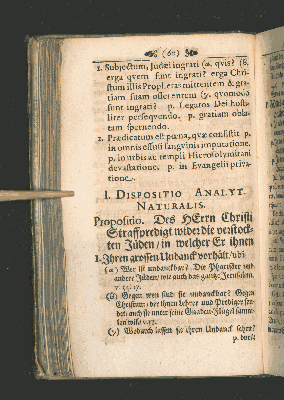 (60)
1. Subjectum, Judæi ingrati (α. qvis? (β.
erga qvem sunt ingrati? erga Chri-
stum illis Prophetas mittentem & gra-
tiam suam offerentem (γ. qvomodo
sunt ingrati? p. Legatos Dei host-
liter perseqvendo. p. gratiam obla-
tam spernendo.
2. Prædicatum est pœna, qvæ consistit p.
in omnis effusi sangvinis imputatione.
p. in urbis ac templi Hierosolymitani
devastatione. p. in Evangelii priva-
tione.
I. DISPOSITIO ANALYT.
NATURALIS.
Propositio. Des HErrn Christi
Straffpredigt wider die verstock-
ten Jüden / in welcher Er ihnen
1. Ihren grossen Undanck vorhält / ubi
(α) Wer ist undanckbar? Die Phariseer und
andere Jüden / wie auch das gantze Jerusalem.
v. 34. 37.
(β) Gegen wen sind sie undanckbar? Gegen
Christum / der ihnen Lehrer und Prediger sen-
det / auch sie unter seine Gnaden-Flügel samm-
len wil. v. 37.
(γ) Wodurch lassen sie ihren Undanck sehen?
p. durch